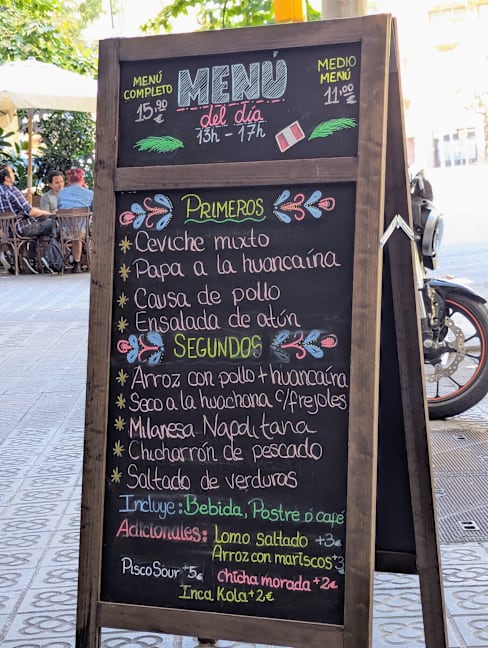 MENÚ
COMPLETO
15,90
€
MENÚ
del día
13h - 17h
MEDIO
MENÚ
11,00
€
PRIMEROS
Ceviche mixto
Papa a la huancaína
Causa de pollo
Ensalada de atún
SEGUNDOS
Arroz con pollo + huancaína
Seco a la huachana c/frejoles
Milanesa Napolitana
Chicharrón de pescado
Saltado de verduras
Incluye: Bebida, Postre ó café
Adicionales: Lomo saltado +3€
Arroz con mariscos +3
Pisco Sour +5€ chicha morada +2€
Inca Kola +2€